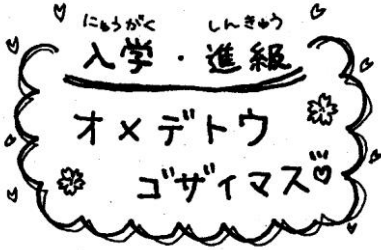 にゅうがく しんきゅう
入学・進級
オメデトウ
ゴザイマス